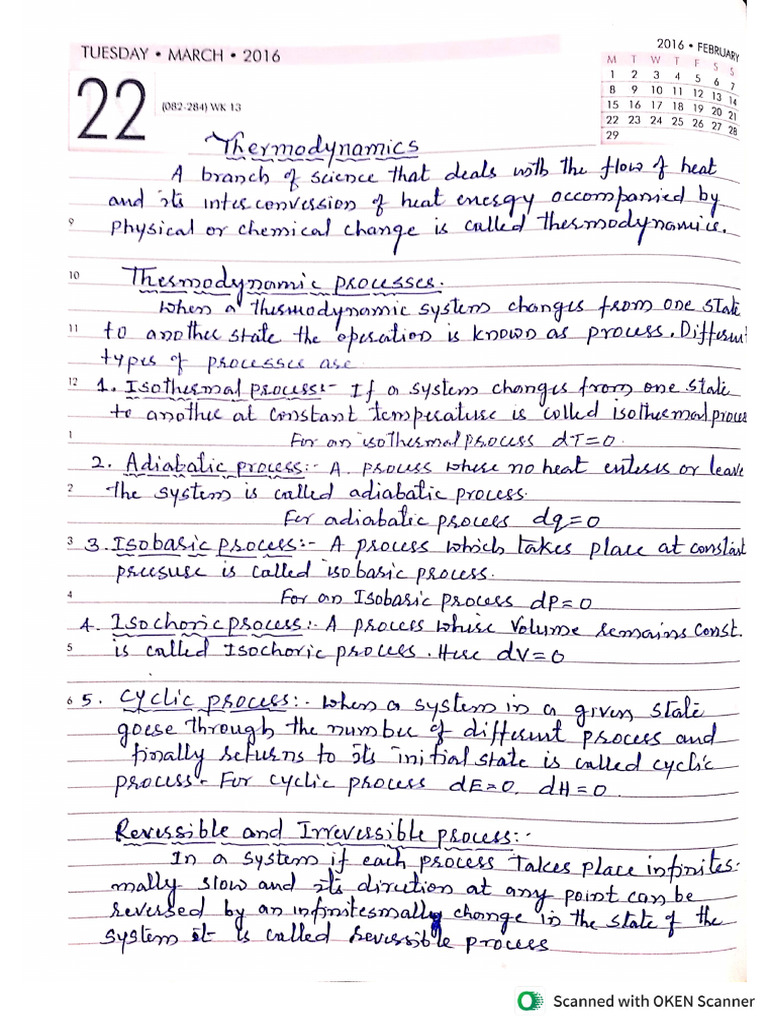 TUESDAY • MARCH • 2016
2016 • FEBRUARY
M T W T F S S
1 2 3 4 5 6 7
8 9 10 11 12 13 14
15 16 17 18 19 20 21
22 23 24 25 26 27 28
29
22
(082-284) WK 13
Thermodynamics
A branch of science that deals with the flow of heat
and its interconversion of heat energy accompanied by
9
physical or chemical change is called thermodynamics.
10
Thermodynamic processes.
When a thermodynamic system changes from one state
11
to another state the operation is known as process. Different
types of processes are
12
1. Isothermal process:- If a system changes from one state
to another at constant temperature is called isothermal process
1
For an isothermal process dT=0.
2. Adiabatic process:- A process where no heat enters or leave
2
the system is called adiabatic process.
For adiabatic process dq=0
3
3. Isobaric process:- A process which takes place at constant
pressure is called isobaric process.
4
For an Isobaric process dP=0
4. Isochoric process:- A process whose volume remains const.
5
is called Isochoric process. Here dV=0
6
5. Cyclic process:- When a system in a given state
goese through the number of different process and
finally returns to its initial state is called cyclic
process- For cyclic process dE=0. dH=0.
Reversible and Irreversible process:-
In a system if each process takes place infinites-
mally slow and its dirution at any point can be
reversed by an infinitesmally change in the state of the
system it is called reversible process
Scanned with OKEN Scanner